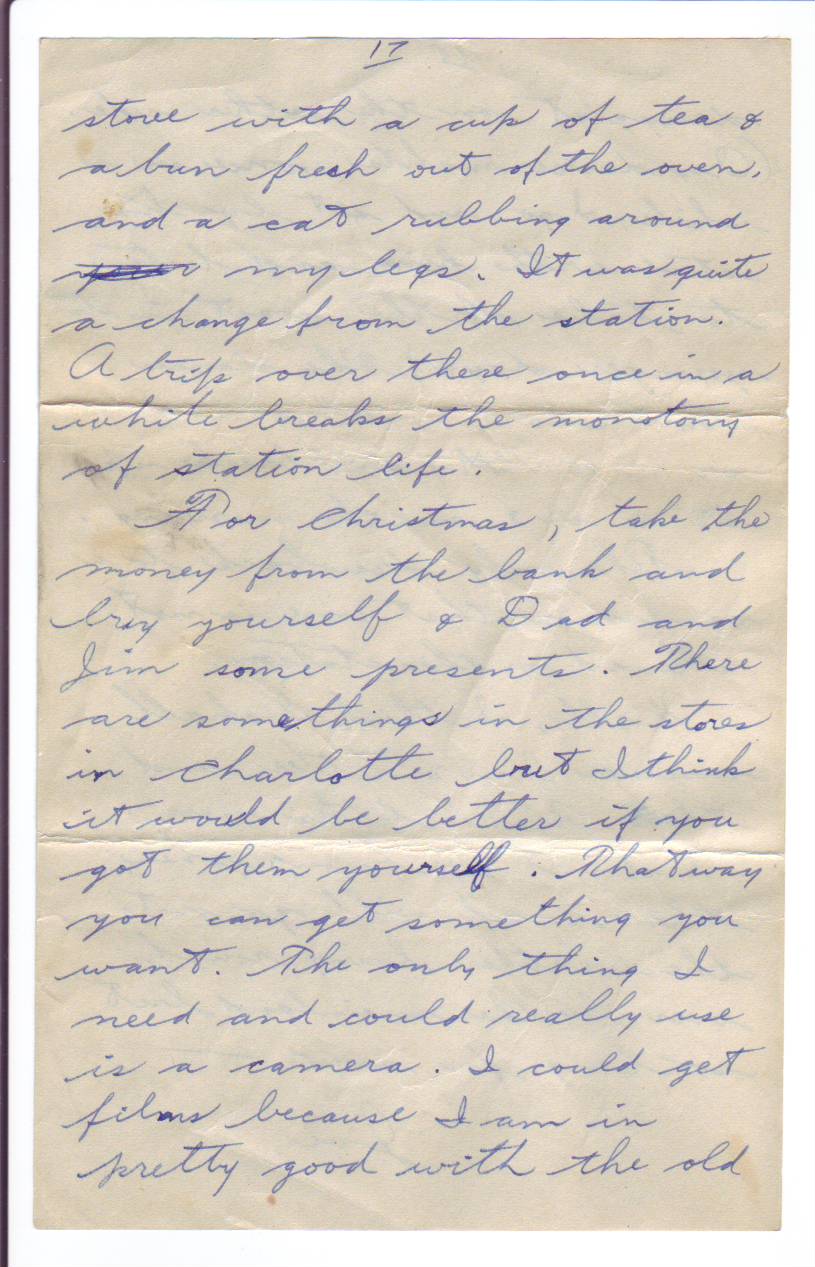 17
stove with a cup of tea &
a bun fresh out of the oven,
and a cat rubbing around
my legs. It was quite
a change from the station.
A trip over there once in a
while breaks the monotony
of station life.
For Christmas, take the
money from the bank and
buy yourself & Dad and
Jim some presents. There
are somethings in the stores
in Charlotte but I think
it would be better if you
got them yourself. That way
you can get something you
want. The only thing I
need and could really use
is a camera. I could get
films because I am in
pretty good with the old